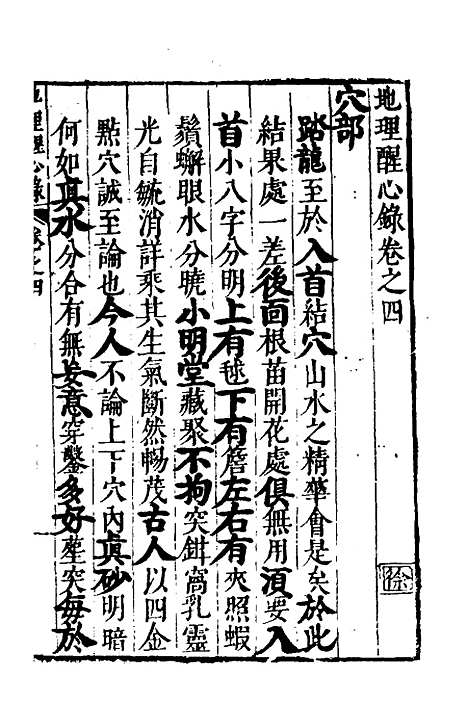 地理醒心錄卷之四
徐
穴部
踏龍至於入首結穴山水之精華會是矣於此
結果處一差後面根苗開花處俱無用湏要入
首小八字分明上有毬下有簷左右有夾照蝦
鬚蠏眼水分曉小明堂藏聚不拘突鉗窩乳靈
光自毓消詳乘其生氣斷然暢茂古人以四金
㸃穴誠至論也今人不論上下穴內真砂明暗
何如真水分合有無妄意穿鑿多好塟突每於
地理醒心錄 卷之四
一